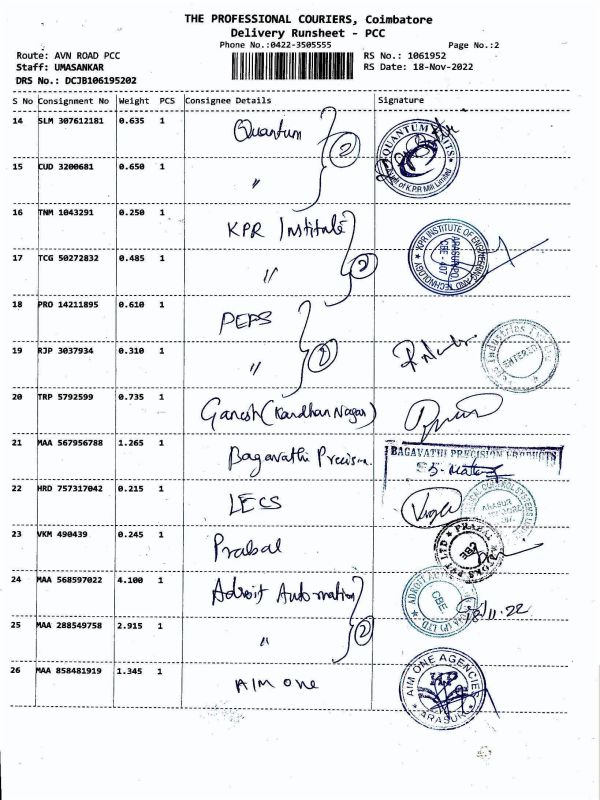 THE PROFESSIONAL COURIERS, Coimbatore
Delivery Runsheet - PCC
Phone No.:0422-3505555
Page No.:2
Route: AVN ROAD PCC
RS No.: 1061952
Staff: UMASANKAR
RS Date: 18-Nov-2022
DRS No.: DCJB106195202
S No Consignment No Weight PCS Consignee Details Signature
14 SLM 307612181 0.635 1 Quantum 2
QUANTUM KNITS
A Unit of K.P.R Mill Limited
15 CUD 3200681 0.650 1 〃
16 TNM 1043291 0.250 1 KPR Institute
KPR INSTITUTE OF ENGINEERING AND TECHNOLOGY
ARASUR PO.
CBE - 407
17 TCG 50272832 0.485 1 〃 2
18 PRO 14211895 0.610 1 PEPS
19 RJP 3037934 0.310 1 〃
Industries
ENTERED
20 TRP 5792599 0.735 1 Ganesh (Kandhan Nagar)
21 MAA 567956788 1.265 1 Bagavathi Precision.
BAGAVATHI PRECISION PRODUCTS
22 HRD 757317042 0.215 1 LECS
CONTROL SYSTEMS
ARASUR
23 VKM 490439 0.245 1 Prabal
CBE
24 MAA 568597022 4.100 1 Adroit Automation
ADROIT
CBE
18/11.22
25 MAA 288549758 2.915 1 〃 2
26 MAA 858481919 1.345 1 AIM ONE
AIM ONE AGENCIES
ARASUR